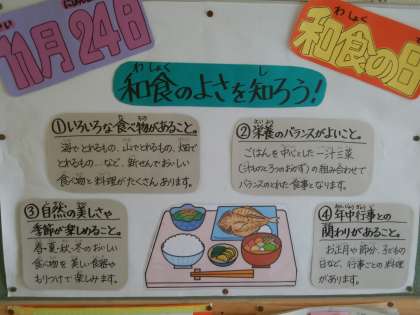 11月24日
和食の日
わしょく
和食のよさを知ろう!
①いろいろな食べ物があること。
海でとれるもの、山でとれるもの、畑で
とれるもの…など、新せんでおいしい
食べ物と料理がたくさんあります。
②栄養のバランスがよいこと。
ごはんを中心とした一汁三菜
(汁ものと3つのおかず)の組み合わせで
バランスのとれた食事となります。
③自然の美しさや
季節が楽しめること。
春・夏・秋・冬のおいしい
食べ物を美しい食器や
もりつけで楽しみます。
④年中行事との
関わりがあること。
お正月や節分、子どもの
日など、行事ごとの料理
があります。